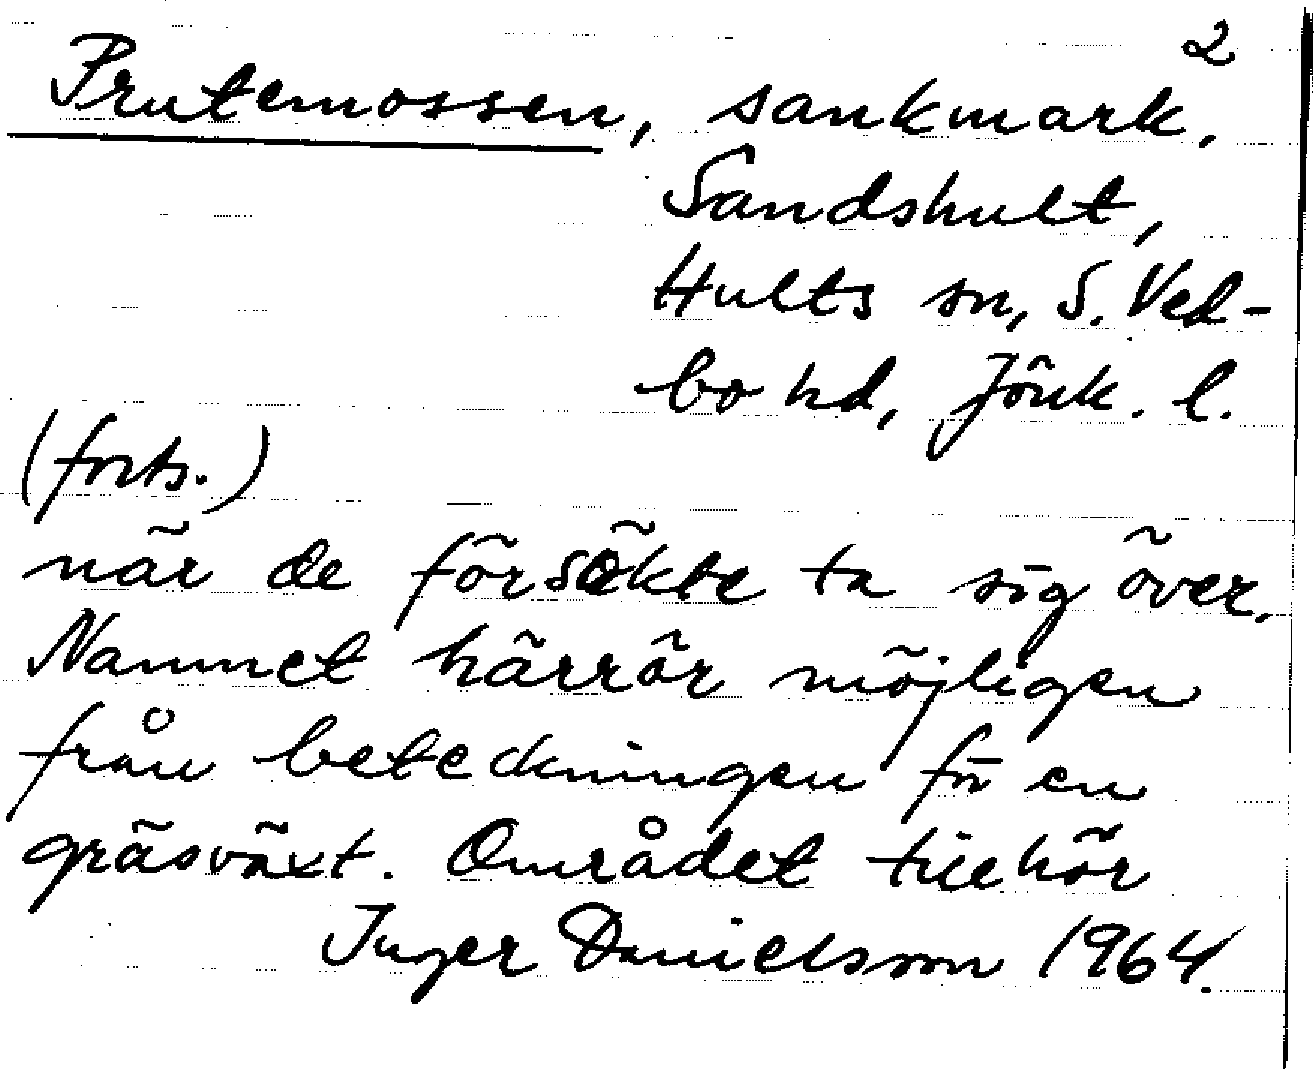 2
Prutemossen, sankmark,
Sandshult,
Hults sn, S. Ved-
bo hd, Jönk. l.
(forts.)
när de försökte ta sig över.
Namnet härrör möjligen
från beteckningen för en
gräsväxt. Området tillhör
Inger Danielsson 1964.